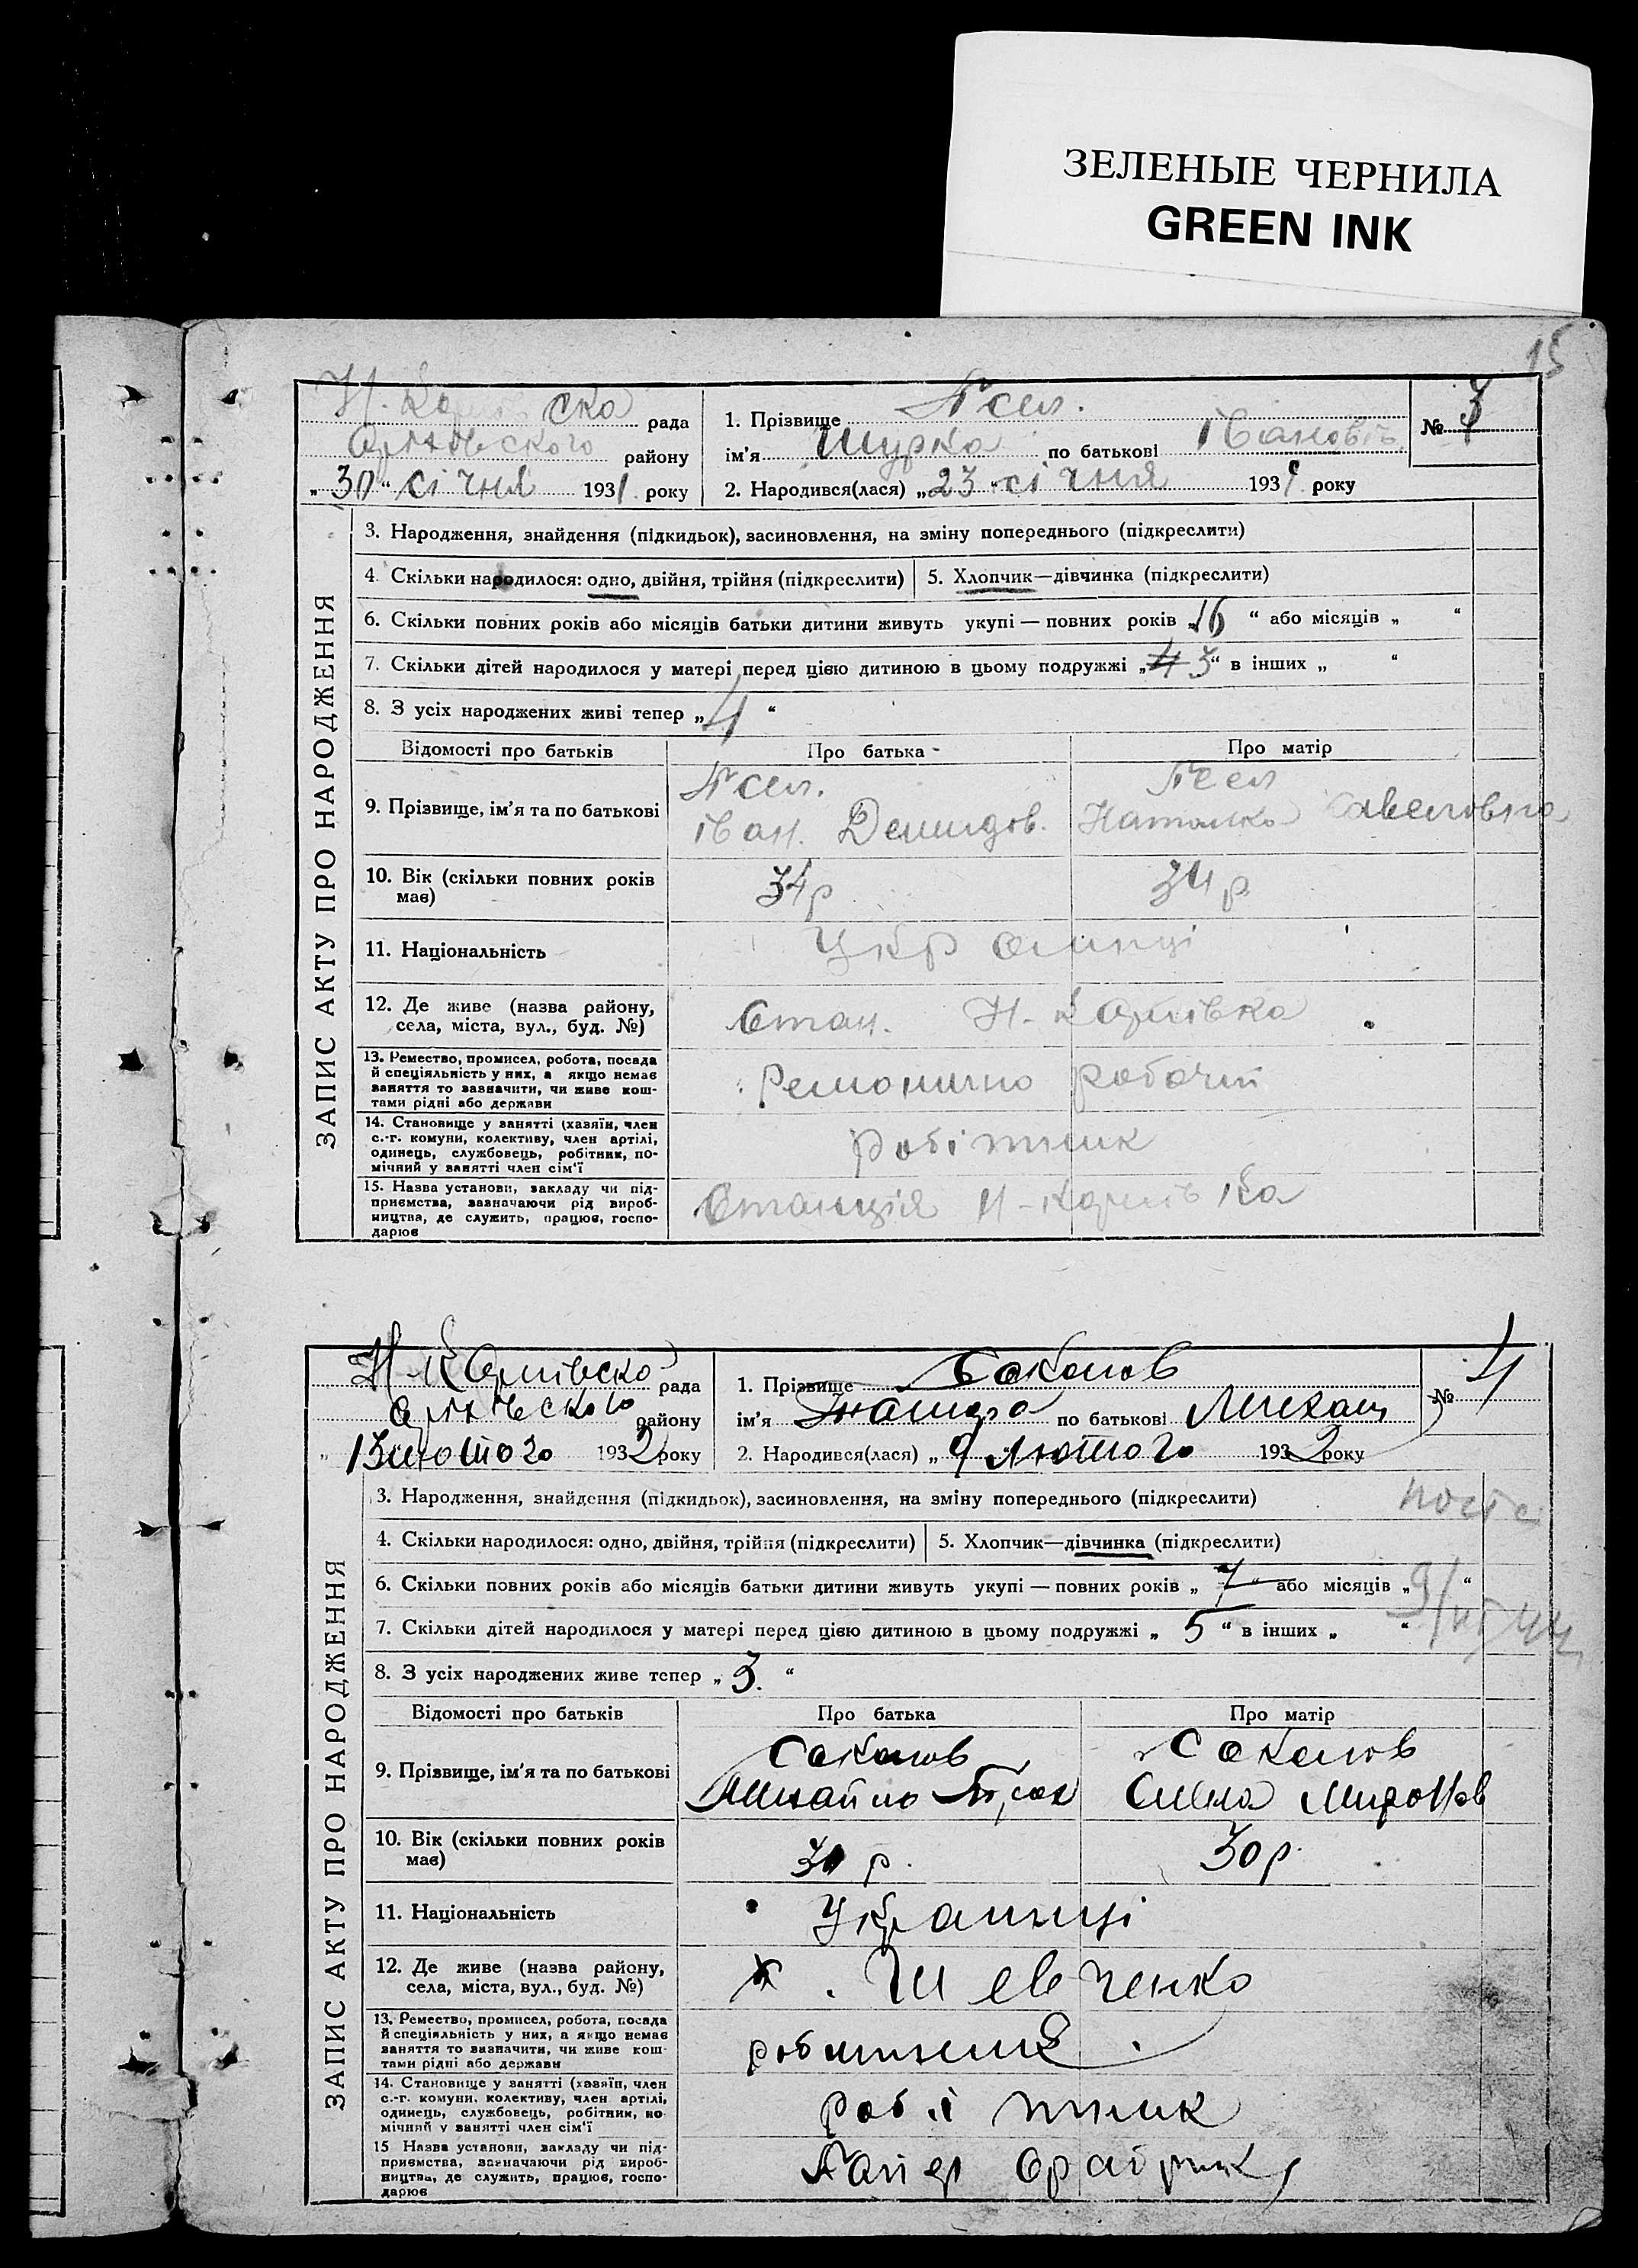 ЗЕЛЕНЫЕ ЧЕРНИЛА
GREEN INK
15
рада
району
„30“ січня 1931 року
1. Прізвище Псел.
ім'я Шурка по батькові Іванович
2. Народився(лася) „23“ січня 193 року
№ 3
ЗАПИС АКТУ ПРО НАРОДЖЕННЯ
3. Народження, знайдення (підкидьок), засиновлення, на зміну попереднього (підкреслити)
4. Скільки народилося: одно, двійня, трійня (підкреслити) 5. Хлопчик—дівчинка (підкреслити)
6. Скільки повних років або місяців батьки дитини живуть укупі — повних років „16“ або місяців „ “
7. Скільки дітей народилося у матері перед цією дитиною в цьому подружжі „4 3“ в інших „ “
8. З усіх народжених живі тепер „4“
Відомості про батьків Про батька Про матір
9. Прізвище, ім'я та по батькові
Псел. Псел
Іван. Демидов. Наталка Савеловна
10. Вік (скільки повних років
має)
34 р 34 р
11. Національність
12. Де живе (назва району,
села, міста, вул., буд. №)
Стан. Н-Карлівка
13. Ремество, промисел, робота, посада
й спеціяльність у них, а якщо немає
заняття то зазначити, чи живе кош-
тами рідні або держави
Ремонтно рабочий
14. Становище у занятті (хазяїн, член
с.-г. комуни, колективу, член артілі,
одинець, службовець, робітник, по-
мічний у занятті член сім'ї
робітник
15. Назва установи, закладу чи під-
приємства, зазначаючи рід вироб-
ництва, де служить, працює, госпо-
дарює
Станція Н-Карлівка
Н-Карлівско рада
району
13 лютого 1932 року
1. Прізвище Соколов
ім'я Тамара по батькові Михайл
2. Народився(лася) „9 лютого 1932 року
№ 4
ЗАПИС АКТУ ПРО НАРОДЖЕННЯ
3. Народження, знайдення (підкидьок), засиновлення, на зміну попереднього (підкреслити)
4. Скільки народилося: одно, двійня, трійня (підкреслити) 5. Хлопчик—дівчинка (підкреслити)
6. Скільки повних років або місяців батьки дитини живуть укупі — повних років „7“ або місяців „ “
7. Скільки дітей народилося у матері перед цією дитиною в цьому подружжі „5“ в інших „ “
8. З усіх народжених живе тепер „3.“
Відомості про батьків Про батька Про матір
9. Прізвище, ім'я та по батькові
Соколов Соколов
Михайло Миронов
10. Вік (скільки повних років
має)
р. 30 р.
11. Національність
Українці
12. Де живе (назва району,
села, міста, вул., буд. №)
х. Шевченко
13. Ремество, промисел, робота, посада
й спеціяльність у них, а якщо немає
заняття то зазначити, чи живе кош-
тами рідні або держави
14. Становище у занятті (хазяїн, член
с.-г. комуни, колективу, член артілі,
одинець, службовець, робітник, по
мічний у занятті член сім'ї
робітник
15 Назва установи, закладу чи під-
приємства, зазначаючи рід вироб-
ництва, де служить, працює, госпо-
дарює